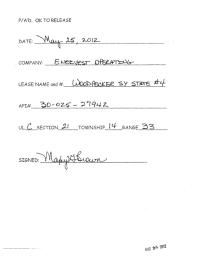 P/A'D. OK TO RELEASE
DATE: May 25, 2012
COMPANY: ENERVEST OPERATING
LEASE NAME and #: WOODPECKER SY STATE #4
API# 30-025-27942
UL C SECTION 21 TOWNSHIP 14 RANGE 33
SIGNED: